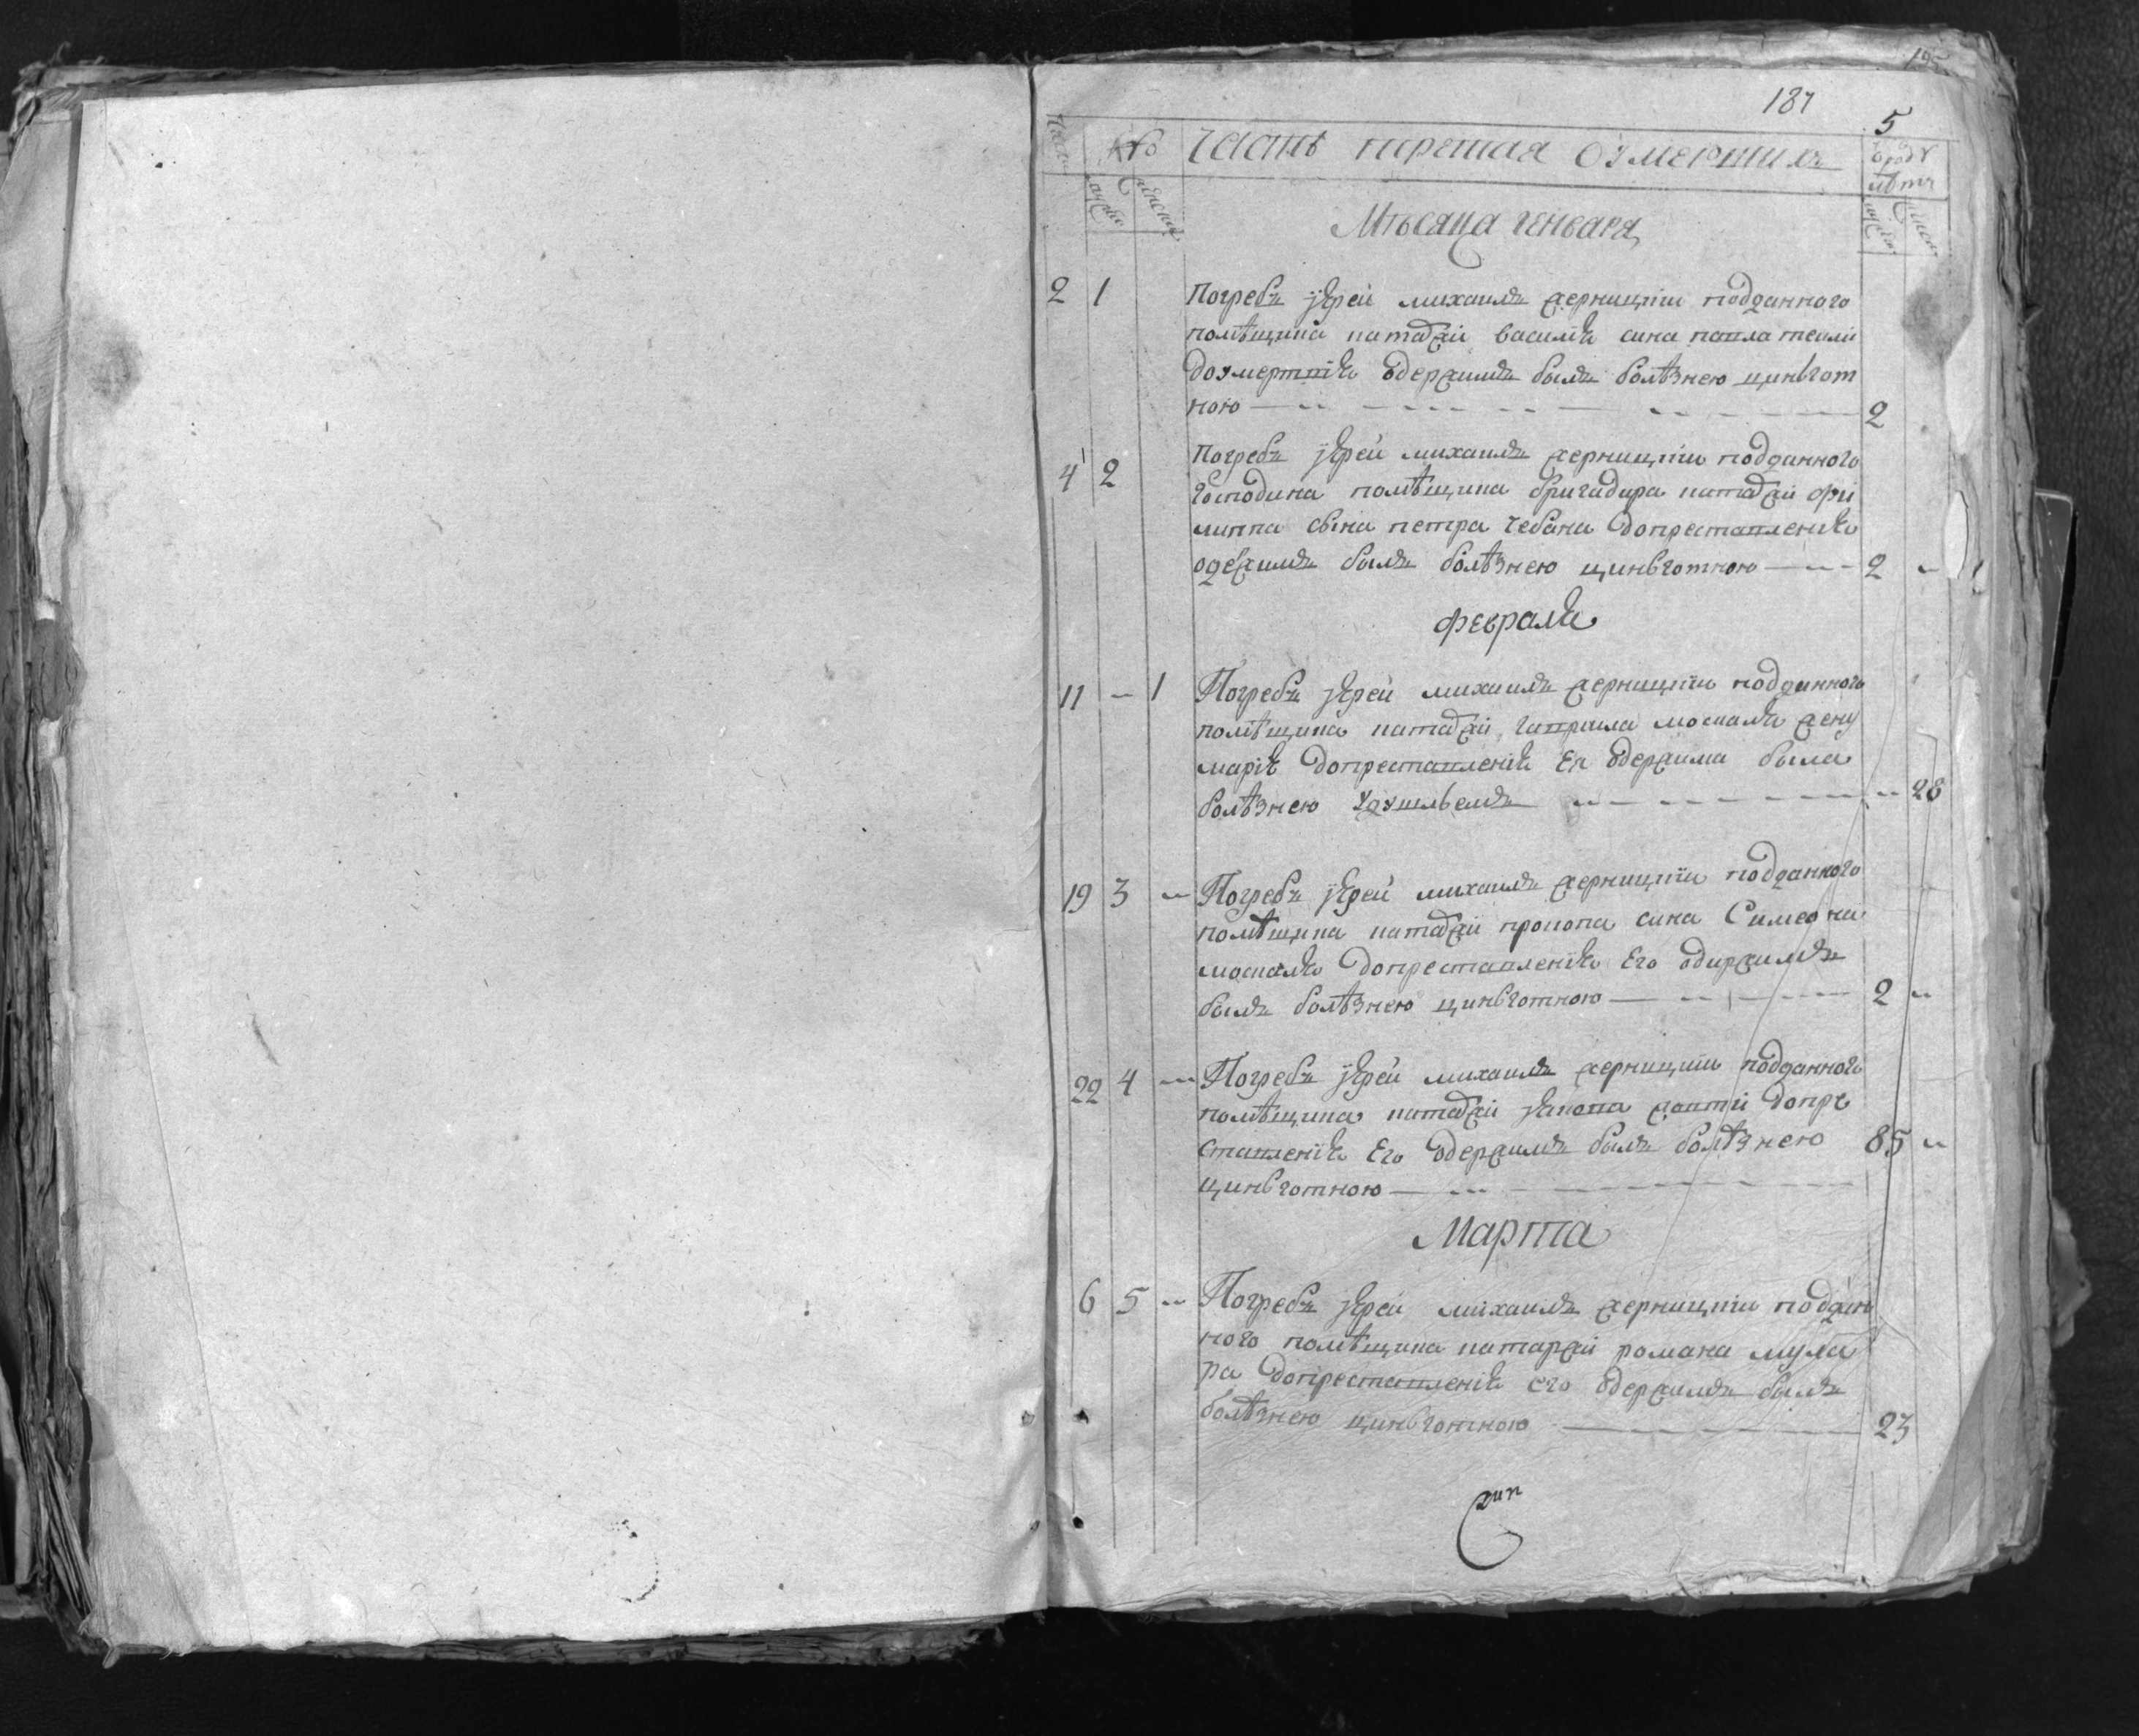 187
5
Часть третая оумершихъ
Мѣсяца генваря
2 1 Погребъ іерей михаилъ подданного
помѣщика катаржи василія сина павла
до умертвія одержимъ былъ болѣзнею цинкгот
ною 2
4 2 Погребъ іерей михаилъ подданного
господина помѣщика бригадира катаржи фи
липпа сына петра чебана до преставленія
одержимъ былъ болѣзнею цинкготною 2
февраля
11 1 Погребъ іерей михаилъ подданного
помѣщика катаржи гаврила москаля жену
марію до преставленія ея одержима была
болѣзнею удушьемъ 28
19 3 Погребъ іерей михаилъ подданного
помѣщика катаржи прокопа сина Симеона
москаля до преставленія его одиржимъ
былъ болѣзнею цинкготною 2
22 4 Погребъ іерей михаилъ подданного
помѣщика катаржи якова до пре
ставленія его одержимъ былъ болѣзнею 85
цинкготною
Марта
6 5 Погребъ іерей михаилъ поддан
ного помѣщика катаржи романа муля
ра до преставленія его одержимъ былъ
болѣзнею цинкготною 23